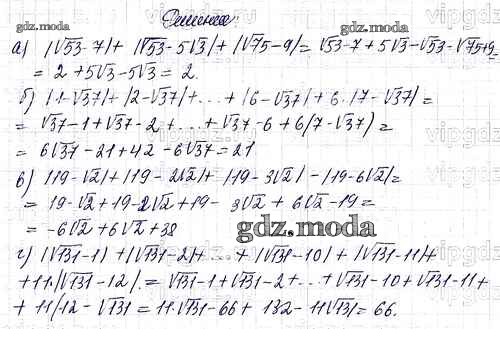 Решение
а) |√53-7|+ |√53-5√3|+|√75-9|= √53-7+5√3-√53-√75+9=
= 2+5√3-5√3= 2.
б) |1-√37|+|2-√37|+...+|6-√37|+6·|7-√37|=
= √37-1+√37-2+...+√37-6+6(7-√37)=
= 6√37-21+42-6√37=21
в) |19-√2|+|19-2√2|+ |19-3√2| -|19-6√2|=
= 19-√2+19-2√2+19- 3√2+ 6√2-19=
= -6√2+6√2+38
gdz.moda
г) |√131-1|+|√131-2|+...+|√131-10|+|√131-11|+
+11·|√131-12|=√131-1+√131-2+...+√131-10+√131-11+
+ 11|12-√131=11·√131-66+132-11√131=66.
gdz.moda